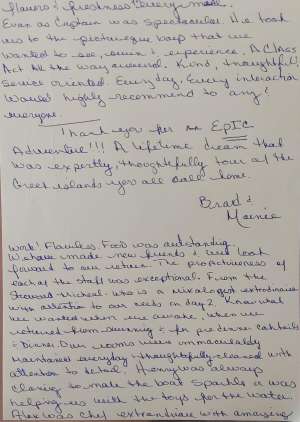 flavors & freshness every meal.
Evan as Captain was spectacular. He took
us to the picturesque bays that we
wanted to see, swim & experience. A Class
Act all the way around. Kind, thoughtful,
Service oriented. Everyday, Every interaction
Would highly recommend to any &
everyone.
Thank you for an EPIC
Adventure!!! A lifetime dream that
was expertly, thoughtfully tour of the
Greek islands you all call home.
Brad &
Marie
work! Flawless. Food was outstanding.
We have made new friends & look
forward to our return. The proficiency of
each of the staff was exceptional. From the
Steward Micheal who is a mixologist extrodinaire
with attention to our needs on day 2. Knew what
we wanted when we awoke, when we
returned from swimming & for pre dinner cocktails
& Dinner. Our rooms were immaculately
maintained everyday & thoughtfully cleaned with
attention to detail. Henry was always
claning to make the boat sparkle & was
helping us with the toys for the water.
Alex was chef extrordinaire with amazing